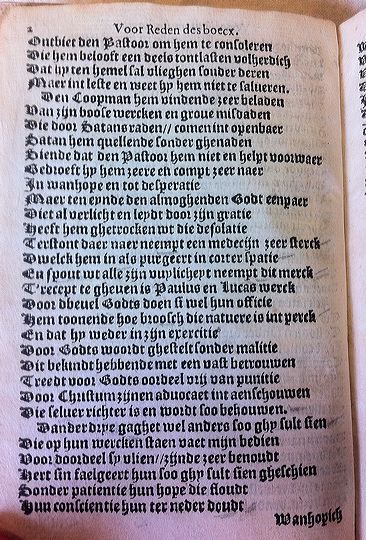 2 Voor Reden des boecx.
Ontbiet den Pastoor om hem te consoleren
Die hem belooft een deels tontlasten volherdich
Dat hy ten hemel sal vlieghen sonder deren
Maer int leste en weet hy hem niet te salueren.
Den Coopman hem vindende zeer beladen
Van zijn boose wercken en groue misdaden
Die door Satans raden// comen int openbaer
Satan hem quellende sonder ghenaden
Siende dat den Pastoor hem niet en helpt voorwaer
Bedroeft hy hem zeere en compt zeer naer
In wanhope en tot desperatie
Maer ten eynde den almoghenden Godt eenpaer
Diet al verlicht en leydt door zijn gratie
Heeft hem ghetrocken wt die desolatie
Terstont daer naer neempt een medecijn zeer sterck
Dwelck hem in als purgeert in corter spatie
En spout wt alle zijn vuylicheyt neempt dit merck
T'recept te gheuen is Paulus en Lucas werck
Door dbeuel Godts doen si wel hun officie
Hem toonende hoe broosch die natuere is int perck
En dat hy weder in zijn exercitie
Door Godts woordt ghestelt sonder malitie
Dit bekindt hebbende met een vast betrouwen
Treedt voor Godts oordeel vrij van punitie
Door Christum zijnen aduocaet int aenschouwen
Die seluer richter is en wordt soo behouwen.
Dander drye gaghet wel anders soo ghy sult sien
Die op hun wercken staen vaet mijn bedien
Voor doordeel sy vlien//zijnde zeer benoudt
Hert sin faelgeert hun soo ghy sult sien gheschien
Sonder patientie hun hope die floudt
Hun conscientie hun ter neder doudt
Wanhopich